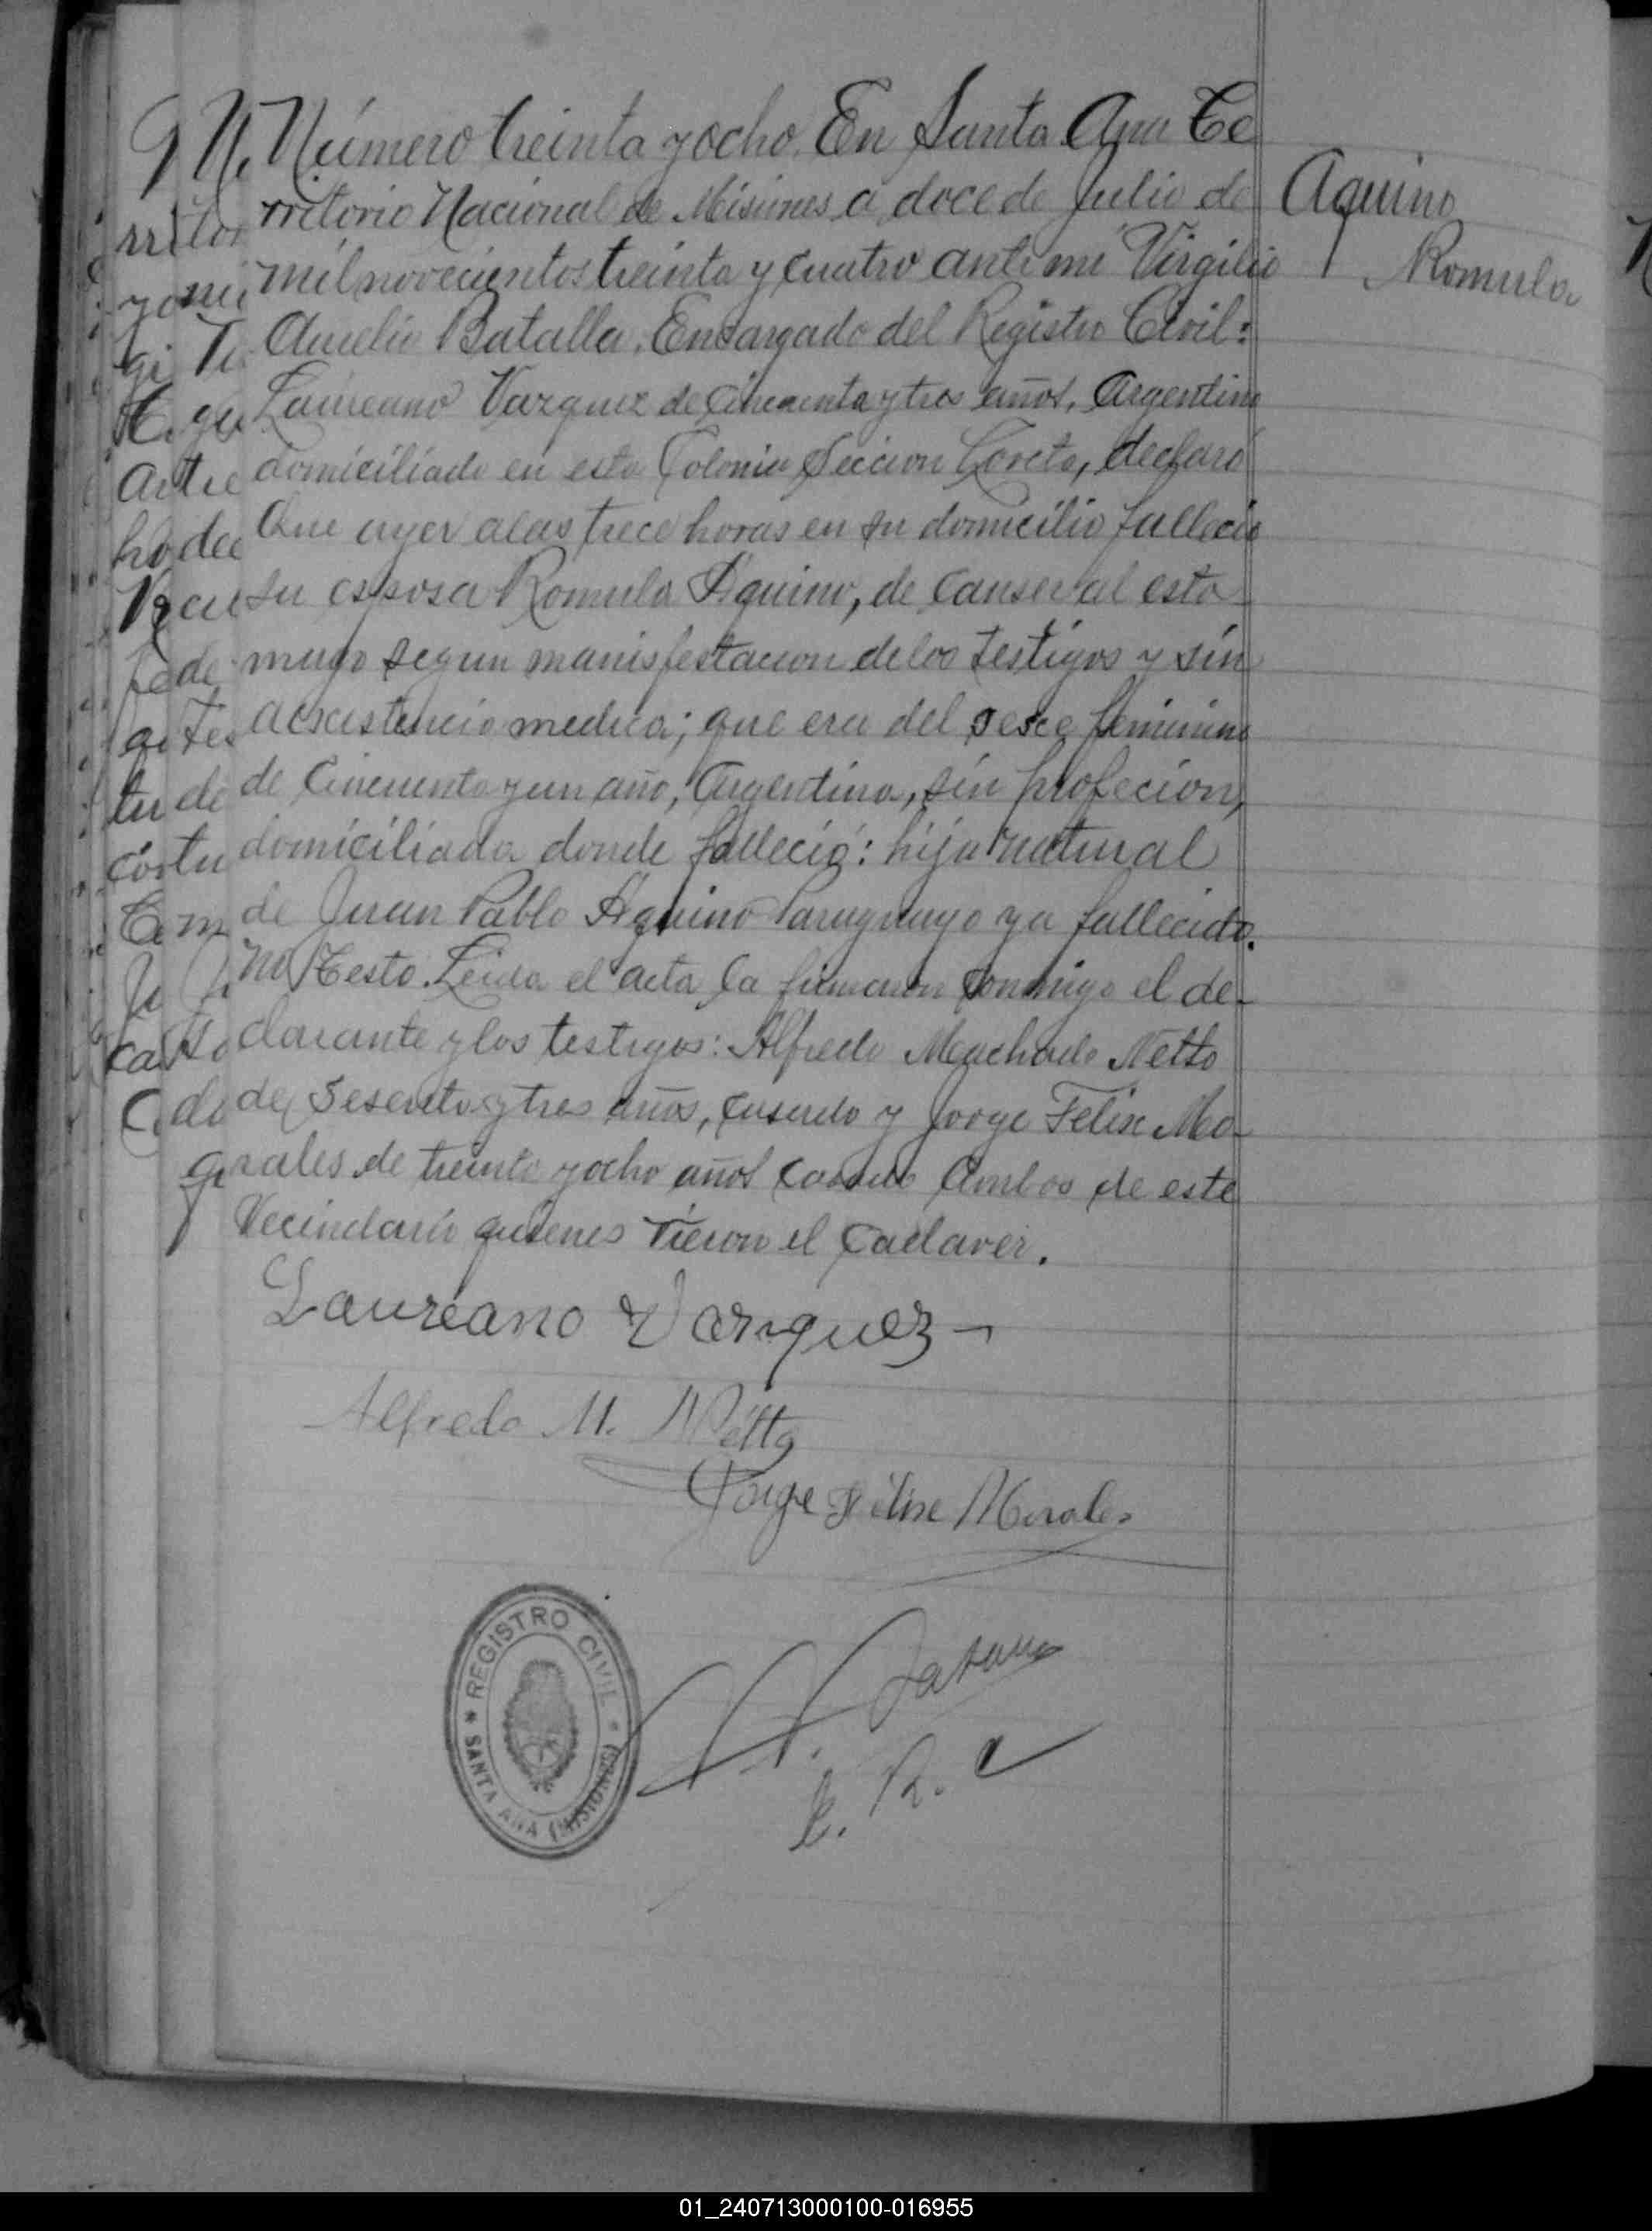 Número treinta y ocho. En Santa Ana Te
rritorio Nacional de Misiones a doce de Julio de
mil novecientos treinta y cuatro ante mi Virgilio
Aurelio Batalla, Encargado del Registro Civil:
Laureano Vazquez de cincuenta y tres años, Argentino
domiciliado en esta Colonia Seccion Loreto, declaró
Que ayer a las trece horas en su domicilio fallecio
su esposa Romula Aquino, de Cancer al esto
mago segun manisfestacion de los testigos y sin
acsistencia medica; que era del secso feminino
de Cincuenta y un año, Argentina, sin profecion,
domiciliada donde falleció: hija natural
de Juan Pablo Aquino Paraguayo ya fallecido.
No Testo. Leida el acta la firmaron conmigo el de-
clarante y los testigos: Alfredo Machado Netto
de sesenta y tres años, casado y Jorge Felix Mo-
rales de treinta y ocho años casado Ambos de este
Vecindario quienes vieron el Cadaver.
Aquino
Romula
Laureano Vazquez
Alfredo M. Netto
Jorge Félix Morales
REGISTRO CIVIL
SANTA ANA (MISIONES)
E. R. C
01_240713000100-016955